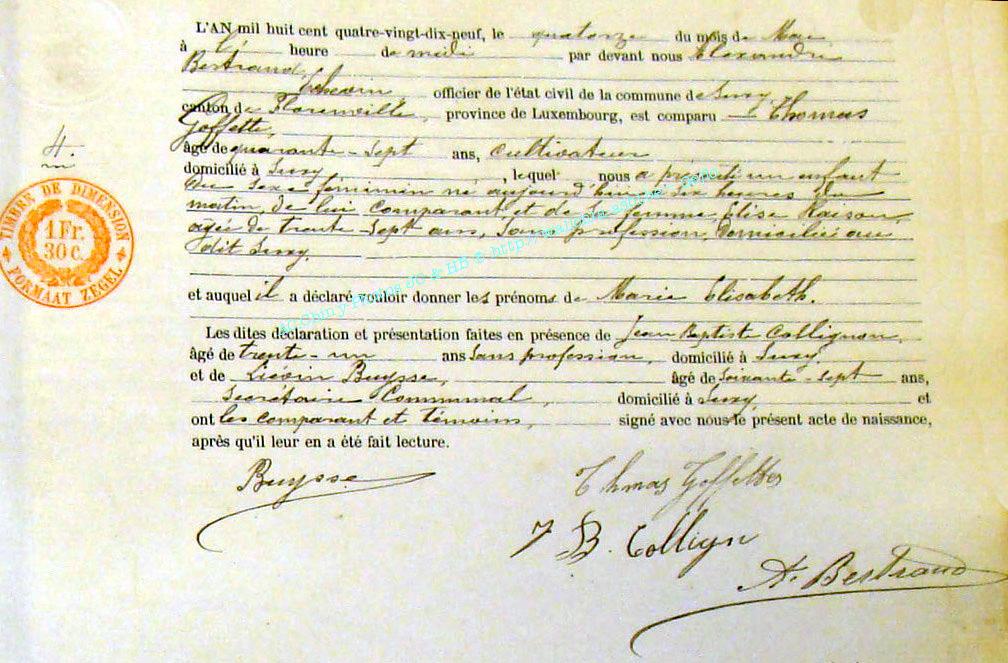 L'AN mil huit cent quatre-vingt-dix-neuf, le quatorze du mois de Mai
à heure de midi par devant nous Alexandre
Bertrand, Echevin officier de l'état civil de la commune de Suxy,
canton de Florenville, province de Luxembourg, est comparu Thomas
Goffette,
4.
âgé de quarante-sept ans, cultivateur
domicilié à Suxy, lequel nous a présenté un enfant
du sexe féminin né aujourd'hui à six heures du
matin, de lui comparant et de sa femme Elise Raison,
agée de trente-sept ans, sans profession, domiciliée au
dit Suxy.
TIMBRE DE DIMENSION
1 Fr.
30 c.
FORMAAT ZEGEL
et auquel il a déclaré vouloir donner les prénoms de Marie Elisabeth.
Les dites déclaration et présentation faites en présence de Jean Baptiste Collignon,
âgé de trente-un ans sans profession, domicilié à Suxy,
et de Liévin Buysse, âgé de soixante-sept ans,
Secrétaire Communal, domicilié à Suxy, et
ont les comparant et témoins, signé avec nous le présent acte de naissance,
après qu'il leur en a été fait lecture.
Buysse
Thmas Goffettes
J B. Collign
A. Bertrand